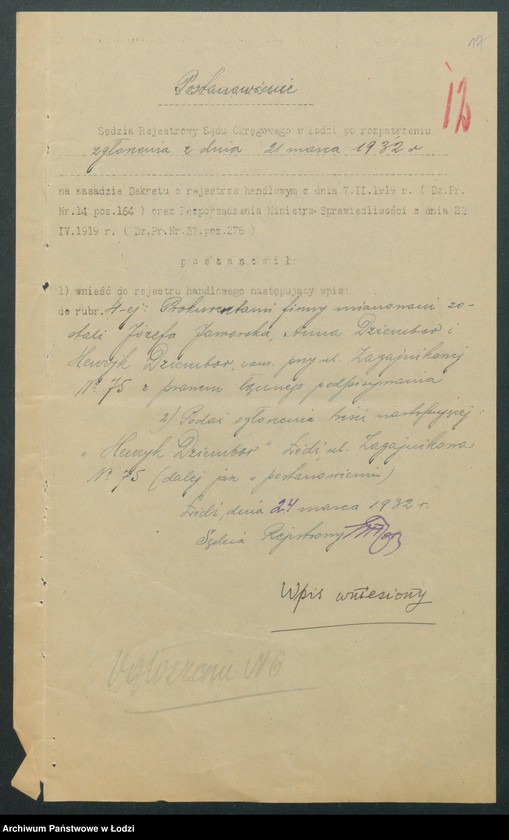 12
Postanowienie
12
Sędzia Rejestrowy Sądu Okręgowego w Łodzi po rozpatrzeniu
zgłoszenia z dnia 21 marca 1932 r
na zasadzie Dekretu o rejestrze handlowym z dnia 7.II.1919 r. ( Dz.Pr.
Nr.14 poz.164 ) oraz Rozporządzenia Ministra Sprawiedliwości z dnia 22
IV.1919 r. ( Dz.Pr.Nr.37.poz.278 )
p o s t a n o w i ł :
1) wnieść do rejestru handlowego następujący wpis:
do rubr. 4-ej: Prokurentami firmy mianowani zo-
stali Józefa Jaworska, Anna Dziembor i
Henryk Dziembor, zam. przy ul. Zagajnikowej
No 75 z prawem łącznego podpisywania
2) Podać ogłoszenie treści następującej:
"Henryk Dziembor" Łódź, ul. Zagajnikowa
No 75 (dalej jak w postanowieniu)
Łódź, dnia 24 marca 1932 r.
Sędzia Rejestrowy
Wpis wniesiony
Ogłoszenie No 6
Archiwum Państwowe w Łodzi